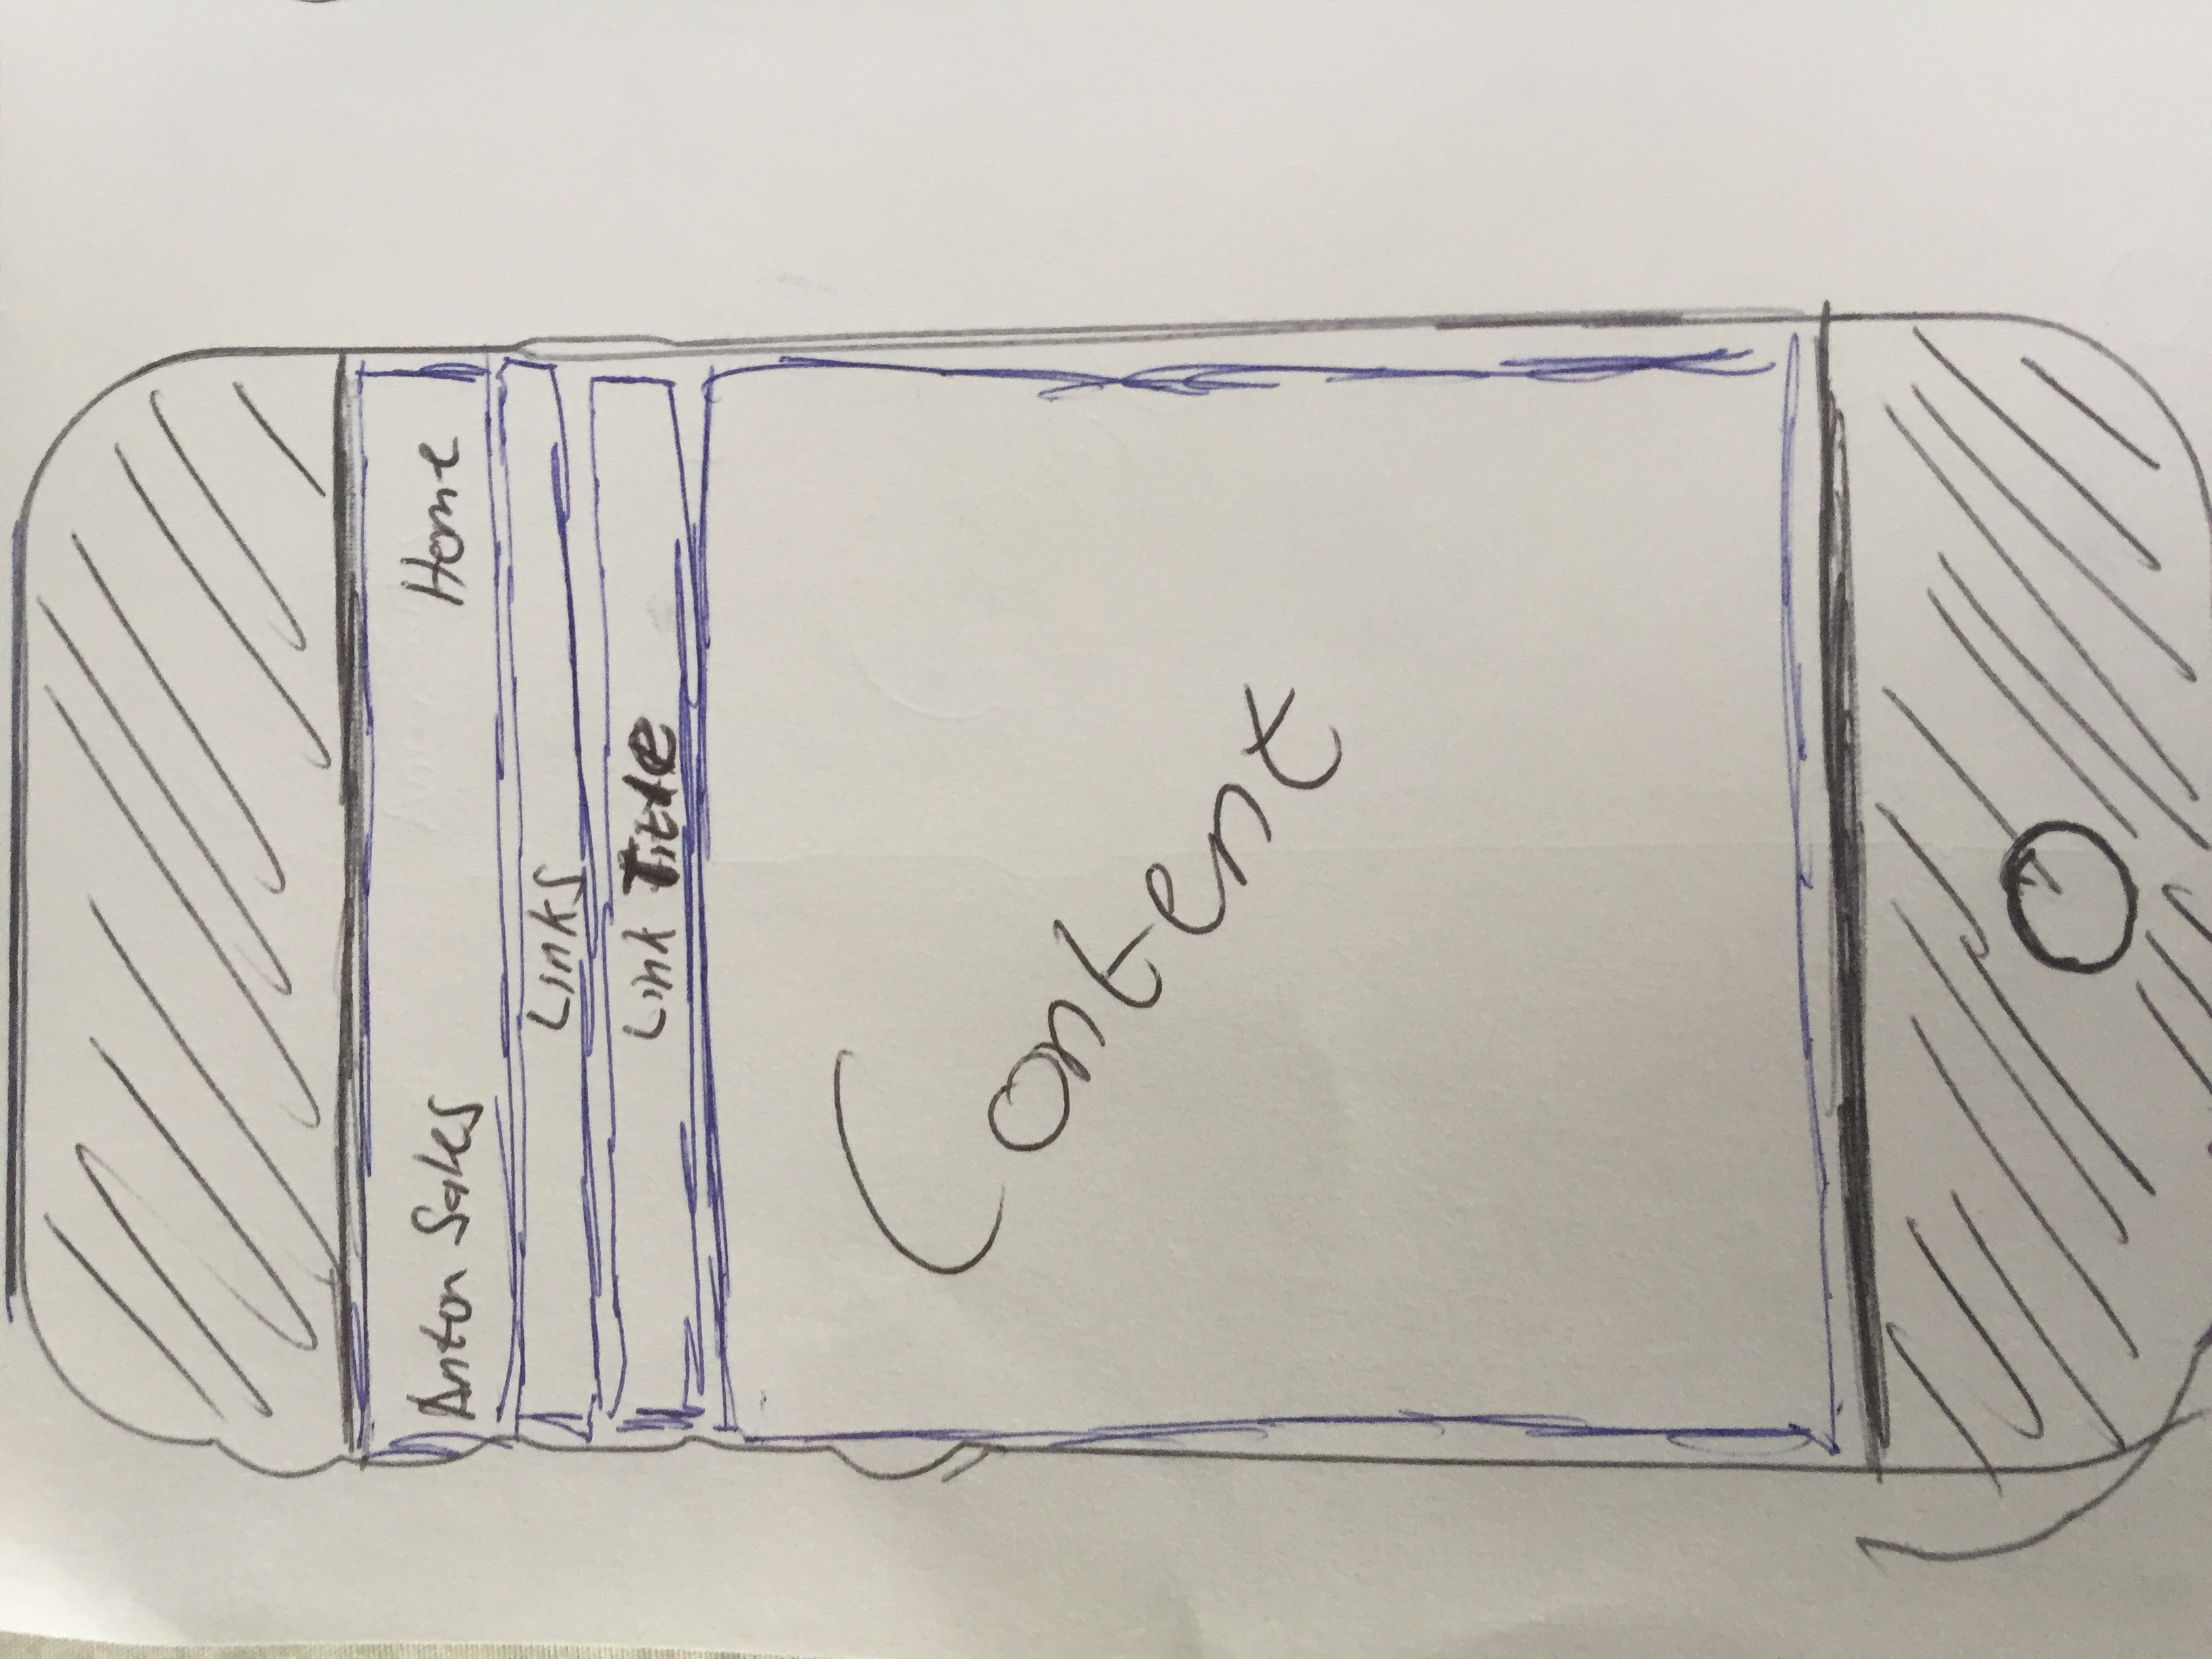 Anton Sales Home
Links
Link Title
Content